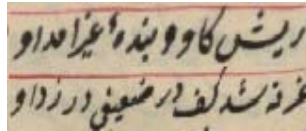 ریش گاو و بندهٔ غیر آمد او
غرقه شد کف در ضعیفی در زد او